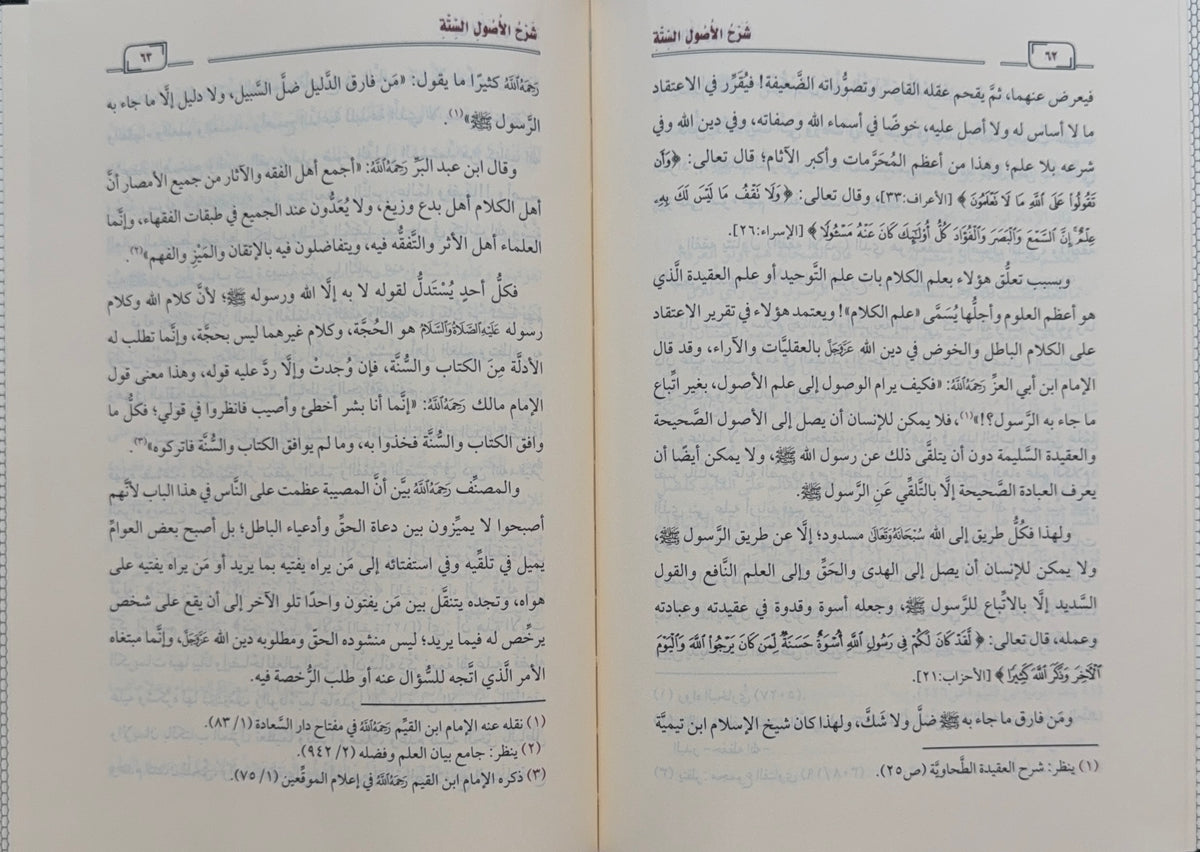 شَرْحُ الأُصُولِ السِّتَّةِ
٦٢
فيعرض عنهما، ثمَّ يقحم عقله القاصر وتصوُّراته الضَّعيفة! فيُقَرِّر في الاعتقاد
ما لا أساس له ولا أصل عليه، خوضًا في أسماء الله وصفاته، وفي دين الله وفي
شرعه بلا علم؛ وهذا من أعظم المُحَرَّمات وأكبر الآثام؛ قال تعالى: ﴿وَأَن
تَقُولُوا۟ عَلَى ٱللَّهِ مَا لَا تَعْلَمُونَ﴾ [الأعراف:٣٣]، وقال تعالى: ﴿وَلَا نَقْفُ مَا لَيْسَ لَكَ بِهِۦ
عِلْمٌ ۚ إِنَّ ٱلسَّمْعَ وَٱلْبَصَرَ وَٱلْفُؤَادَ كُلُّ أُو۟لَٰٓئِكَ كَانَ عَنْهُ مَسْـُٔولًا﴾ [الإسراء:٢٦].
وبسبب تعلُّق هؤلاء بعلم الكلام بات علم التَّوحيد أو علم العقيدة الَّذي
هو أعظم العلوم وأجلُّها يُسَمَّى «علم الكلام»! ويعتمد هؤلاء في تقرير الاعتقاد
على الكلام الباطل والخوض في دين الله عَزَّوَجَلَّ بالعقليَّات والآراء، وقد قال
الإمام ابن أبي العزِّ رَحِمَهُ اللَّهُ: «فكيف يرام الوصول إلى علم الأصول، بغير اتِّباع
ما جاء به الرَّسول؟!»(١)، فلا يمكن للإنسان أن يصل إلى الأصول الصَّحيحة
والعقيدة السَّليمة دون أن يتلقَّى ذلك عن رسول الله ﷺ، ولا يمكن أيضًا أن
يعرف العبادة الصَّحيحة إلَّا بالتَّلقِّي عَنِ الرَّسول ﷺ.
ولهذا فكُلُّ طريق إلى الله سُبْحَانَهُ وَتَعَالَى مسدود؛ إلَّا عن طريق الرَّسول ﷺ،
ولا يمكن للإنسان أن يصل إلى الهدى والحَقِّ وإلى العلم النَّافع والقول
السَّديد إلَّا بالاتِّباع للرَّسول ﷺ، وجعله أسوة وقدوة في عقيدته وعبادته
وعمله، قال تعالى: ﴿لَّقَدْ كَانَ لَكُمْ فِى رَسُولِ ٱللَّهِ أُسْوَةٌ حَسَنَةٌ لِّمَن كَانَ يَرْجُوا۟ ٱللَّهَ وَٱلْيَوْمَ
ٱلْـَٔاخِرَ وَذَكَرَ ٱللَّهَ كَثِيرًا﴾ [الأحزاب:٢١].
ومَن فارق ما جاء به ﷺ ضلَّ ولا شَكَّ، ولهذا كان شيخ الإسلام ابن تيميَّة
(١) ينظر: شرح العقيدة الطَّحاويَّة (ص٢٥).
شَرْحُ الأُصُولِ السِّتَّةِ
٦٣
رَحِمَهُ اللَّهُ كثيرًا ما يقول: «مَن فارق الدَّليل ضلَّ السَّبيل، ولا دليل إلَّا ما جاء به
الرَّسول ﷺ»(١).
وقال ابن عبد البَرِّ رَحِمَهُ اللَّهُ: «أجمع أهل الفقه والآثار من جميع الأمصار أنَّ
أهل الكلام أهل بدع وزيغ، ولا يُعَدُّون عند الجميع في طبقات الفقهاء، وإنَّما
العلماء أهل الأثر والتَّفقُّه فيه، ويتفاضلون فيه بالإتقان والمَيْزِ والفهم»(٢).
فكلُّ أحدٍ يُسْتَدلُّ لقوله لا به إلَّا الله ورسوله ﷺ؛ لأنَّ كلام الله وكلام
رسوله عَلَيْهِ الصَّلَاةُ وَالسَّلَامُ هو الحُجَّة، وكلام غيرهما ليس بحجَّة، وإنَّما تطلب له
الأدلَّة مِنَ الكتاب والسُّنَّة، فإن وُجدتْ وإلَّا ردَّ عليه قوله، وهذا معنى قول
الإمام مالك رَحِمَهُ اللَّهُ: «إنَّما أنا بشر أخطئ وأصيب فانظروا في قولي؛ فكلُّ ما
وافق الكتاب والسُّنَّة فخذوا به، وما لم يوافق الكتاب والسُّنَّة فاتركوه»(٣).
والمصنِّف رَحِمَهُ اللَّهُ بيَّن أنَّ المصيبة عظمت على النَّاس في هذا الباب لأنَّهم
أصبحوا لا يميِّزون بين دعاة الحقِّ وأدعياء الباطل؛ بل أصبح بعض العوامِّ
يميل في تلقِّيه وفي استفتائه إلى مَن يراه يفتيه بما يريد أو مَن يراه يفتيه على
هواه، وتجده يتنقَّل بين مَن يفتون واحدًا تلو الآخر إلى أن يقع على شخص
يرخِّص له فيما يريد؛ ليس منشوده الحقّ ومطلوبه دين الله عَزَّوَجَلَّ، وإنَّما مبتغاه
الأمر الَّذي اتَّجه للسُّؤال عنه أو طلب الرُّخصة فيه.
(١) نقله عنه الإمام ابن القيِّم رَحِمَهُ اللَّهُ في مفتاح دار السَّعادة (١/ ٨٣).
(٢) ينظر: جامع بيان العلم وفضله (٢/ ٩٤٢).
(٣) ذكره الإمام ابن القيم رَحِمَهُ اللَّهُ في إعلام الموقِّعين (١/ ٧٥).